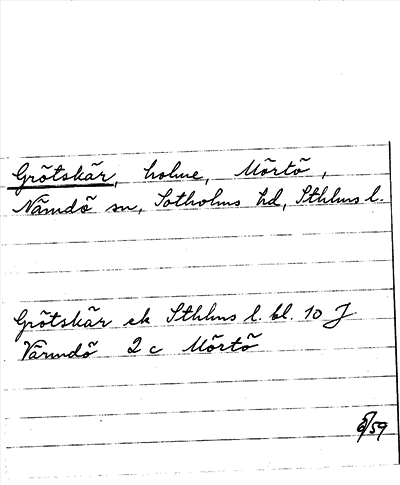 Grötskär, holme, Mörtö,
Nämdö sn, Sotholms hd, Sthlms l.
Grötskär ek Sthlms l. bl. 10 J
Värmdö 2c Mörtö
/59